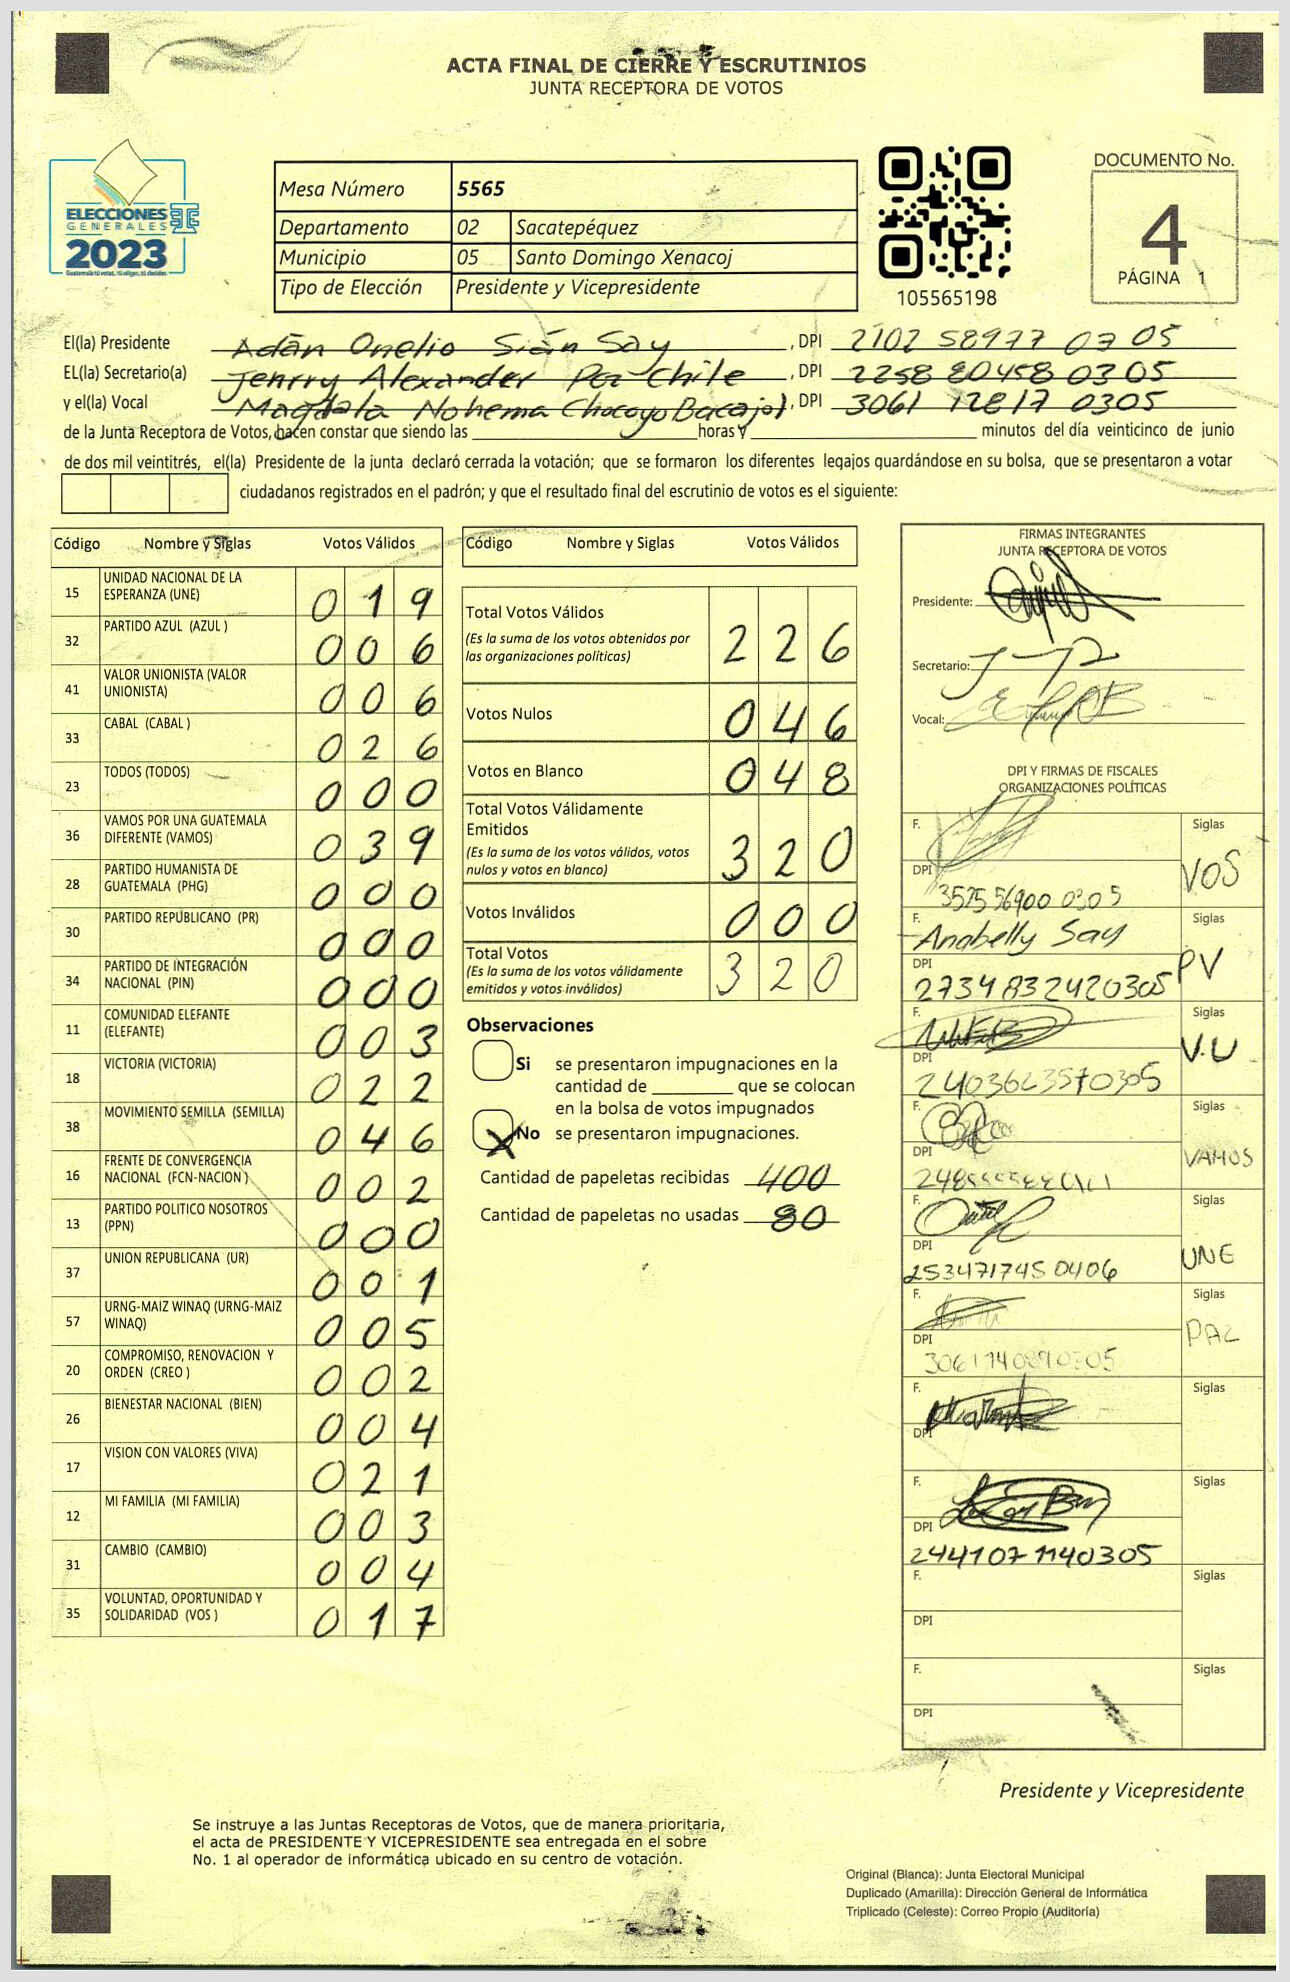 ACTA FINAL DE CIERRE Y ESCRUTINIOS
JUNTA RECEPTORA DE VOTOS
ELECCIONES
GENERALES
2023
Guatemala tú votas, tú eliges, tú decides
Mesa Número 5565
Departamento 02 Sacatepéquez
Municipio 05 Santo Domingo Xenacoj
Tipo de Elección Presidente y Vicepresidente
105565198
DOCUMENTO No.
4
PÁGINA 1
El(la) Presidente Adán Onelio Sián Say, DPI 2102 58977 03 05
EL(la) Secretario(a) Jenrry Alexander Per Chile, DPI 2258 80458 0305
y el(la) Vocal Magdala Nohema Chocoyo Bacajol, DPI 3061 12817 0305
de la Junta Receptora de Votos, hacen constar que siendo las horas y minutos del día veinticinco de junio
de dos mil veintitrés, el(la) Presidente de la junta declaró cerrada la votación; que se formaron los diferentes legajos guardándose en su bolsa, que se presentaron a votar
ciudadanos registrados en el padrón; y que el resultado final del escrutinio de votos es el siguiente:
Código Nombre y Siglas Votos Válidos
15 UNIDAD NACIONAL DE LA ESPERANZA (UNE) 019
32 PARTIDO AZUL (AZUL ) 006
41 VALOR UNIONISTA (VALOR UNIONISTA) 006
33 CABAL (CABAL ) 026
23 TODOS (TODOS) 000
36 VAMOS POR UNA GUATEMALA DIFERENTE (VAMOS) 039
28 PARTIDO HUMANISTA DE GUATEMALA (PHG) 000
30 PARTIDO REPUBLICANO (PR) 000
34 PARTIDO DE INTEGRACIÓN NACIONAL (PIN) 000
11 COMUNIDAD ELEFANTE (ELEFANTE) 003
18 VICTORIA (VICTORIA) 022
38 MOVIMIENTO SEMILLA (SEMILLA) 046
16 FRENTE DE CONVERGENCIA NACIONAL (FCN-NACION ) 002
13 PARTIDO POLITICO NOSOTROS (PPN) 000
37 UNION REPUBLICANA (UR) 001
57 URNG-MAIZ WINAQ (URNG-MAIZ WINAQ) 005
20 COMPROMISO, RENOVACION Y ORDEN (CREO ) 002
26 BIENESTAR NACIONAL (BIEN) 004
17 VISION CON VALORES (VIVA) 021
12 MI FAMILIA (MI FAMILIA) 003
31 CAMBIO (CAMBIO) 004
35 VOLUNTAD, OPORTUNIDAD Y SOLIDARIDAD (VOS ) 017
Código Nombre y Siglas Votos Válidos
Total Votos Válidos 226
(Es la suma de los votos obtenidos por
las organizaciones políticas)
Votos Nulos 046
Votos en Blanco 048
Total Votos Válidamente
Emitidos 320
(Es la suma de los votos válidos, votos
nulos y votos en blanco)
Votos Inválidos 000
Total Votos 320
(Es la suma de los votos válidamente
emitidos y votos inválidos)
Observaciones
Si se presentaron impugnaciones en la
cantidad de que se colocan
en la bolsa de votos impugnados
X No se presentaron impugnaciones.
Cantidad de papeletas recibidas 400
Cantidad de papeletas no usadas 80
FIRMAS INTEGRANTES
JUNTA RECEPTORA DE VOTOS
Presidente:
Secretario:
Vocal:
DPI Y FIRMAS DE FISCALES
ORGANIZACIONES POLÍTICAS
F. Siglas VOS
DPI 3525 56900 0305
F. Anabelly Say Siglas PV
DPI 2734832420305
F. Siglas V.U
DPI 2403623570305
F. Siglas VAMOS
DPI
F. Siglas UNE
DPI 2534717450406
F. Siglas PAZ
DPI 3061140890305
F. Siglas
DPI
F. Siglas
DPI 2441071140305
F. Siglas
DPI
F. Siglas
DPI
Presidente y Vicepresidente
Se instruye a las Juntas Receptoras de Votos, que de manera prioritaria,
el acta de PRESIDENTE Y VICEPRESIDENTE sea entregada en el sobre
No. 1 al operador de informática ubicado en su centro de votación.
Original (Blanca): Junta Electoral Municipal
Duplicado (Amarilla): Dirección General de Informática
Triplicado (Celeste): Correo Propio (Auditoría)